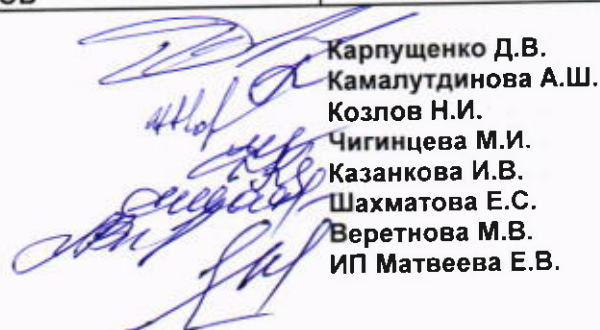 Карпущенко Д.В.
Камалутдинова А.Ш.
Козлов Н.И.
Чигинцева М.И.
Казанкова И.В.
Шахматова Е.С.
Веретнова М.В.
ИП Матвеева Е.В.